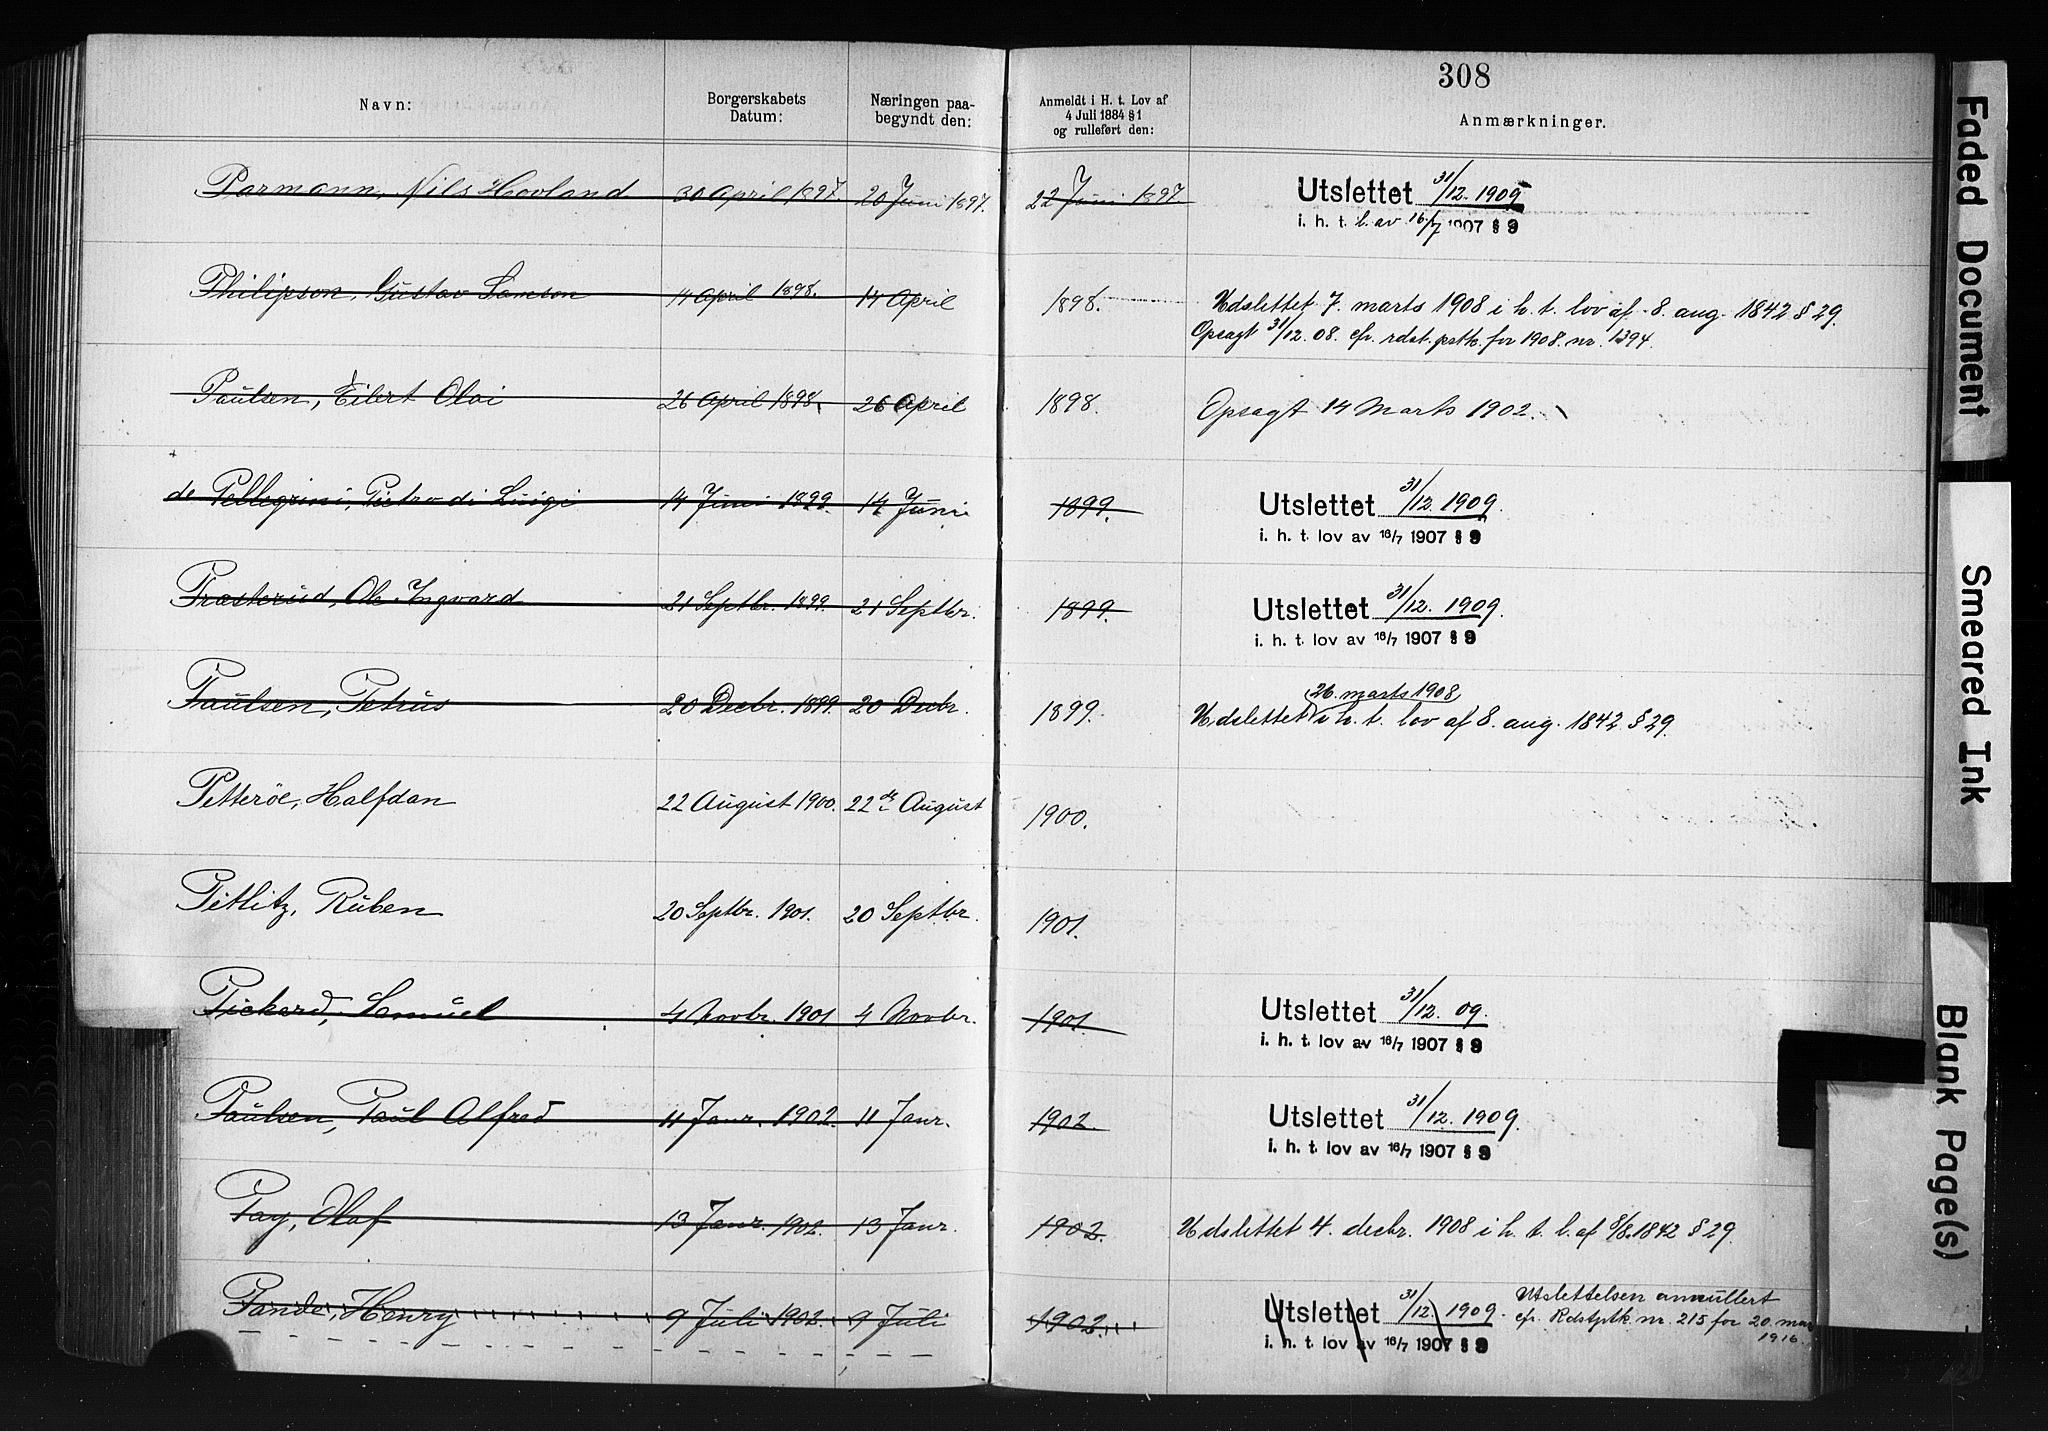 308
Navn: Borgerskabets Datum: Næringen paa-begyndt den: Anmeldt i H. t. Lov af 4 Juli 1884 § 1 og rulleført den: Anmærkninger.
Parmann, Nils Hovland 30 April 1897. 20 Juni 1897. 22 Juni 1897. Utslettet 31/12. 1909
i. h. t. l. av 16/7 1907 § 9
Philipson, Gustav Samson 14 April 1898. 14 April 1898. Udslettet 7. marts 1908 i h. t. lov af 8. aug. 1842 § 29.
Opsagt 31/12. 08. cfr. rdst. prtk. for 1908. nr. 1394.
Paulsen, Eilert Olai 26 April 1898. 26 April 1898. Opsagt 14 Marts 1902.
de Pellegrini, Pietro di Luigi 14 Juni 1899. 14 Juni 1899. Utslettet 31/12. 1909.
i. h. t. lov av 16/7 1907 § 9
Præsterud, Ole Ingvard 21 Septbr. 1899. 21 Septbr. 1899. Utslettet 31/12. 1909.
i. h. t. lov av 16/7 1907 § 9
26. marts 1908
Paulsen, Petrus 20 Decbr. 1899. 20 Decbr. 1899. Udslettet i h. t. lov af 8. aug. 1842 § 29.
Petterøe, Halfdan 22 August 1900. 22de August 1900.
Pitlitz, Ruben 20 Septbr. 1901. 20 Septbr. 1901.
Pickard, Samuel 4 Novbr. 1901 4 Novbr. 1901. Utslettet 31/12. 09.
i. h. t. lov av 16/7 1907 § 9
Paulsen, Paul Alfred 11 Janr. 1902. 11 Janr. 1902. Utslettet 31/12. 1909.
i. h. t. lov av 16/7 1907 § 9
Pay, Olaf 13 Janr. 1902. 13 Janr. 1902. Udslettet 4. decbr. 1908 i h. t. l. af 8/8. 1842 § 29.
Pande, Henry 9 Juli 1902. 9 Juli 1902. Utslettet 31/12. 1909. Utslettelsen annullert
i. h. t. lov av 16/7 1907 § 9 cfr. Rdstptk. nr. 215 for 20. mai
1916.
Faded Document
Smeared Ink
Blank Page(s)